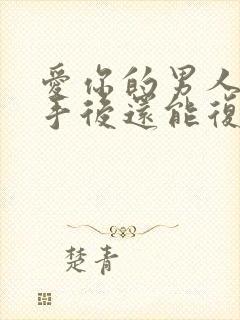 愛你的男人
手後還能復
楚青